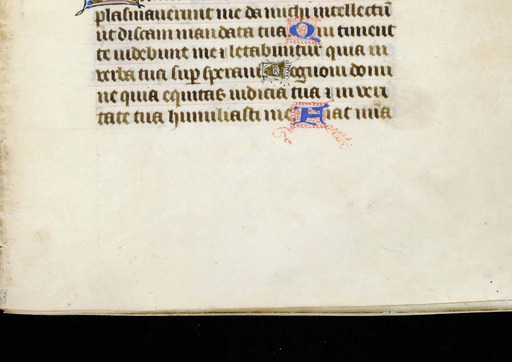 plasmaverunt me da michi intellectū
ut discam mandata tua Qui timent
te videbunt me ⁊ letabuntur quia in
verba tua sup̄ speravi Cognovi domi
ne quia equitas iudicia tua ⁊ in veri
tate tua humiliasti me Fiat mīa